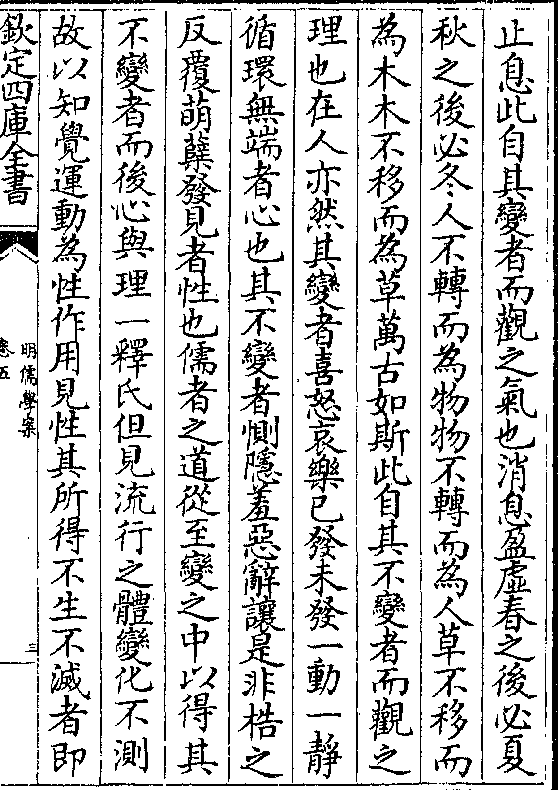 止息此自其變者而觀之氣也消息盈虛春之後必夏
秋之後必冬人不轉而為物物不轉而為人草不移而
為木木不移而為草萬古如斯此自其不變者而觀之
理也在人亦然其變者喜怒哀樂已發未發一動一靜
循環無端者心也其不變者惻隱羞惡辭讓是非梏之
反覆萌蘖發見者性也儒者之道從至變之中以得其
不變者而後心與理一釋氏但見流行之體變化不測
故以知覺運動為性作用見性其所得不生不滅者即
欽定四庫全書
明儒學案
卷五
三